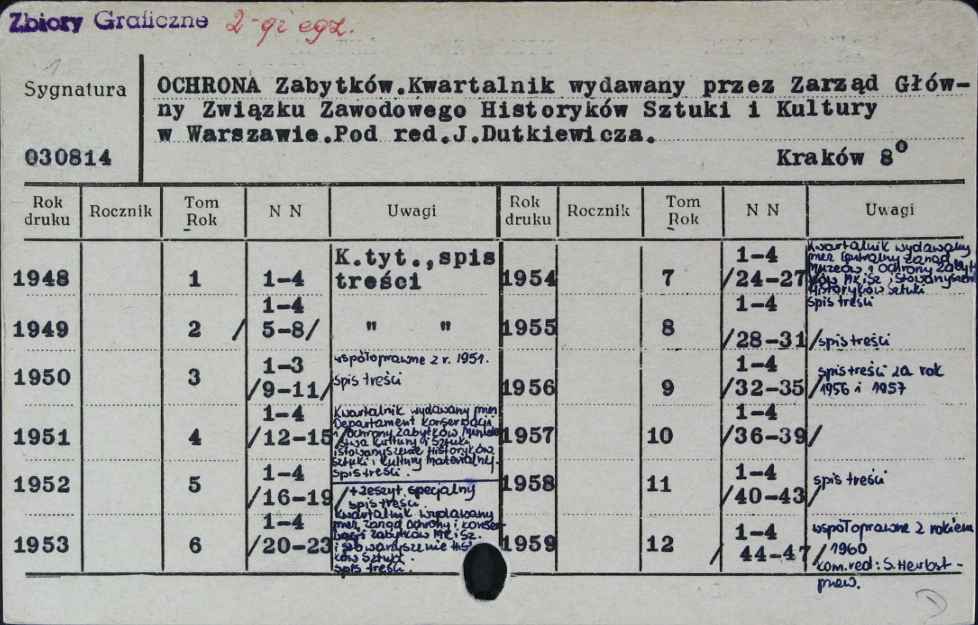 Zbiory Graficzne 2-gi egz.
Sygnatura
030814
OCHRONA Zabytków.Kwartalnik wydawany przez Zarząd Głów-
ny Związku Zawodowego Historyków Sztuki i Kultury
w Warszawie.Pod red.J.Dutkiewicza.
Kraków 8°
Rok druku Rocznik Tom Rok N N Uwagi Rok druku Rocznik Tom Rok N N Uwagi
1948 1 1-4 K.tyt.,spis treści
1949 2 1-4 /5-8/ " "
1950 3 1-3 /9-11/ współoprawne z r. 1951.
spis treści
1951 4 1-4 /12-15/ Kwartalnik wydawany przez
Departament Konserwacji
i Ochrony Zabytków
Kultury i Sztuki
i Stowarzyszenie Historyków
Sztuki i Kultury materialnej.
spis treści.
1952 5 1-4 /16-19/ + zeszyt specjalny
spis treści
1953 6 1-4 /20-23 Kwartalnik wydawany
przez Zarząd Ochrony i Konser-
wacji Zabytków MKiSz.
i Stowarzyszenie Hist-
ków Sztuki.
spis treści.
1954 7 1-4 /24-27/ Kwartalnik wydawany
przez Centralny Zarząd
Muzeów i Ochrony Zabyt-
ków MKiSz i Stowarzyszenie
Historyków Sztuki
spis treści
1955 8 1-4 /28-31/ spis treści
1956 9 1-4 /32-35/ spis treści za rok
1956 i 1957
1957 10 1-4 /36-39/
1958 11 1-4 /40-43/ spis treści
1959 12 1-4 / 44-47/ współoprawne z rokiem
1960
kom.red: S. Herbst -
przew.